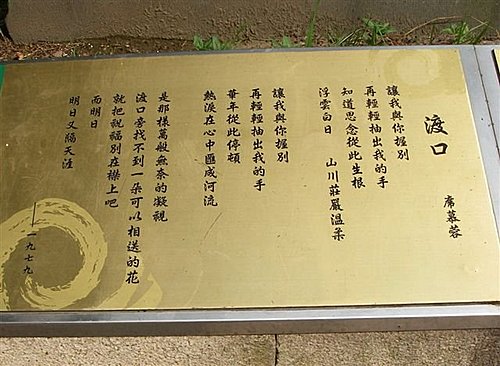 渡口
席慕蓉
讓我與你握別
再輕輕抽出我的手
知道思念從此生根
浮雲白日 山川莊嚴溫柔
讓我與你握別
再輕輕抽出我的手
華年從此停頓
熱淚在心中匯成河流
是那樣萬般無奈的凝視
渡口旁找不到一朵可以相送的花
就把祝福別在襟上吧
而明日
明日又隔天涯
一九七九